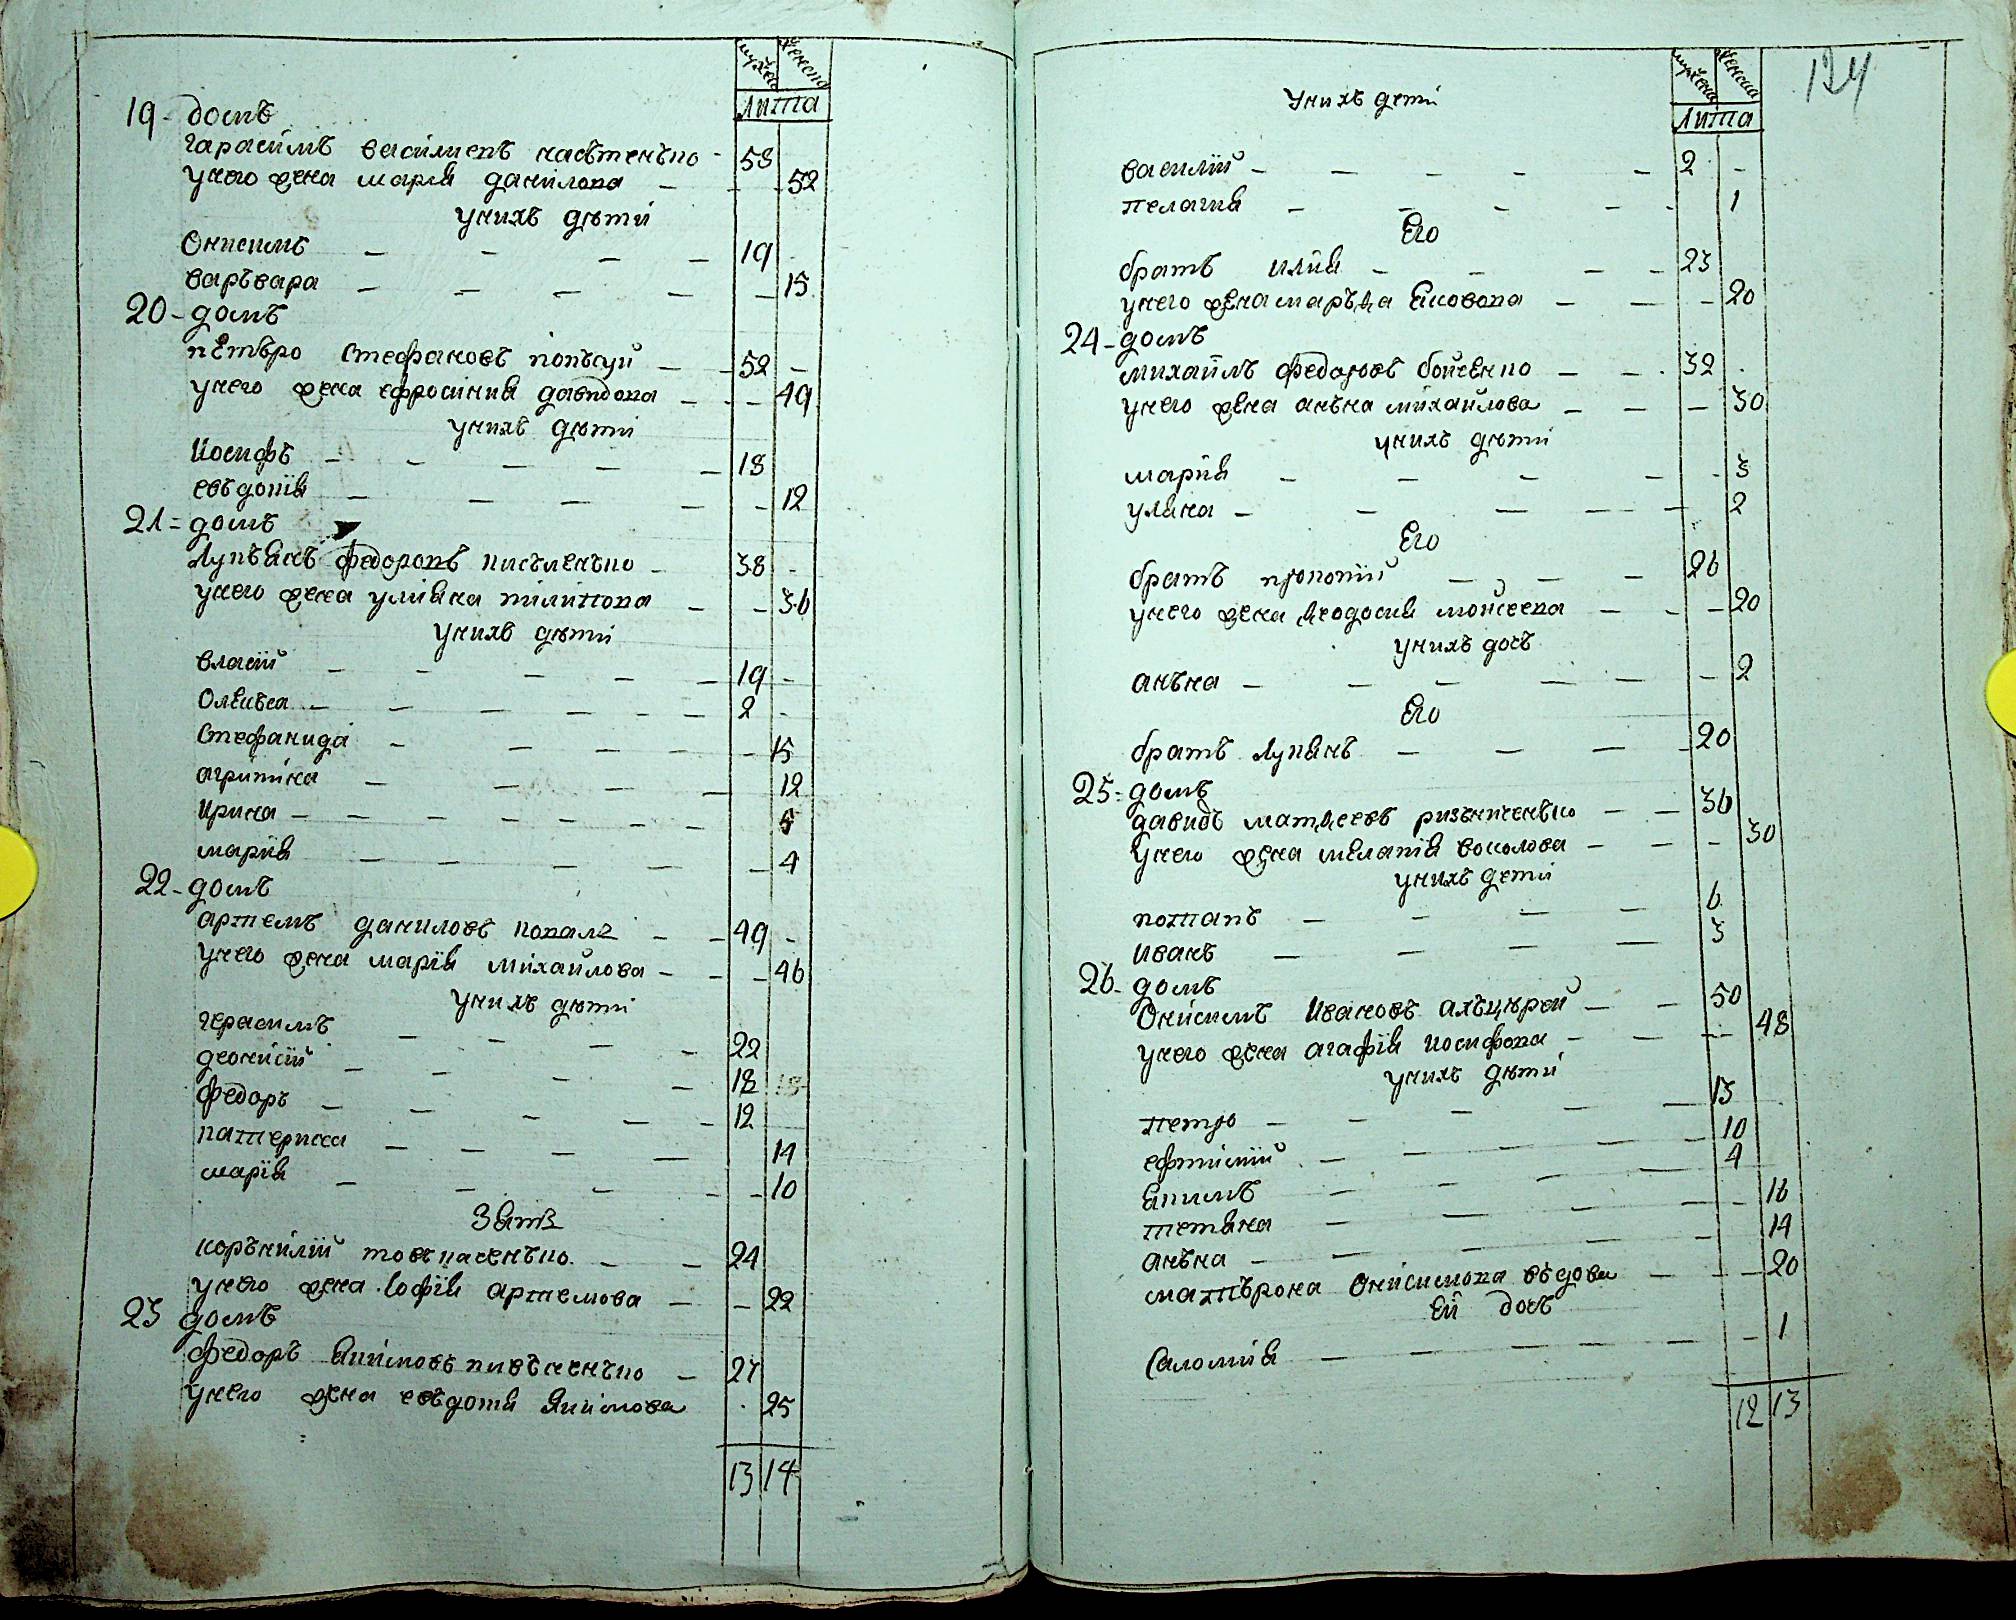 мужеска женска
Лита
19 - домъ
гарасимъ василиевъ настенъко - 58
унего жена мария данилова - - 52
унихъ дѣти
Онисимъ - - - - 19
варъвара - - - - - 15
20 - домъ
пЕтъро Стефановъ копъсуй - - 52 -
унего жена ефросиния давидова - - - 49
унихъ дѣти
Иосифъ - - - - - 18
евъдокия - - - - - 12
21 = домъ
Лукъянъ федоровъ писъменъко - 38 -
унего жена улияна пилипова - - 36
унихъ дѣти
власий - - - - - 19 -
Олекъса - - - - - - 2 -
Стефанида - - - - - 15
агрипина - - - - 12
Ирина - - - - - - - 5
мария - - - - - 4
22 - домъ
артемъ даниловъ коваль - - 49 -
унего жена мария михайлова - - - 46
унихъ дѣти
герасимъ - - - - 22
деонисий - - - - 18
федоръ - - - - - 12
катериса - - - - 14
мария - - - - - 10
Зять
коръниЛий товъкаченъко - - 24
унего жена София артемова - - 22
23 домъ
федоръ якимовъ пивъненъко - 27
унего жена евъдотя якимова - 25
13 14
124
мужеска женска
Лита
унихъ дети
василий - - - - - 2 -
пелагия - - - - - 1
Его
братъ илия - - - - 23
унего жена маръфа яковова - - - 20
24 - домъ
михаилъ федоровъ бойченко - - 32
унего жена анъна михайлова - - - 30
унихъ дѣти
мария - - - - - 3
уляна - - - - - 2
Его
братъ прокопий - - - 26
унего жена феодосия мойсеева - - - 20
унихъ дочь
анъна - - - - - - 2
Его
братъ лукянъ - - - - 20
25 = домъ
давидъ матфеевъ ризъниченъко - - 36
унего жена мелания воколова - - - 30
унихъ дети
потапъ - - - - 6
Иванъ - - - - 3
26 - домъ
Онисимъ Ивановъ - - 50
унего жена агафия иосифова - - - 48
унихъ дѣти
петро - - - - - 13
ефтимий - - - - - 10
якимъ - - - - 4
тетяна - - - - - 16
анъна - - - - - 14
матърона Онисимова въдова - - - 20
Ей дочъ
Саломия - - - - - - 1
12 13